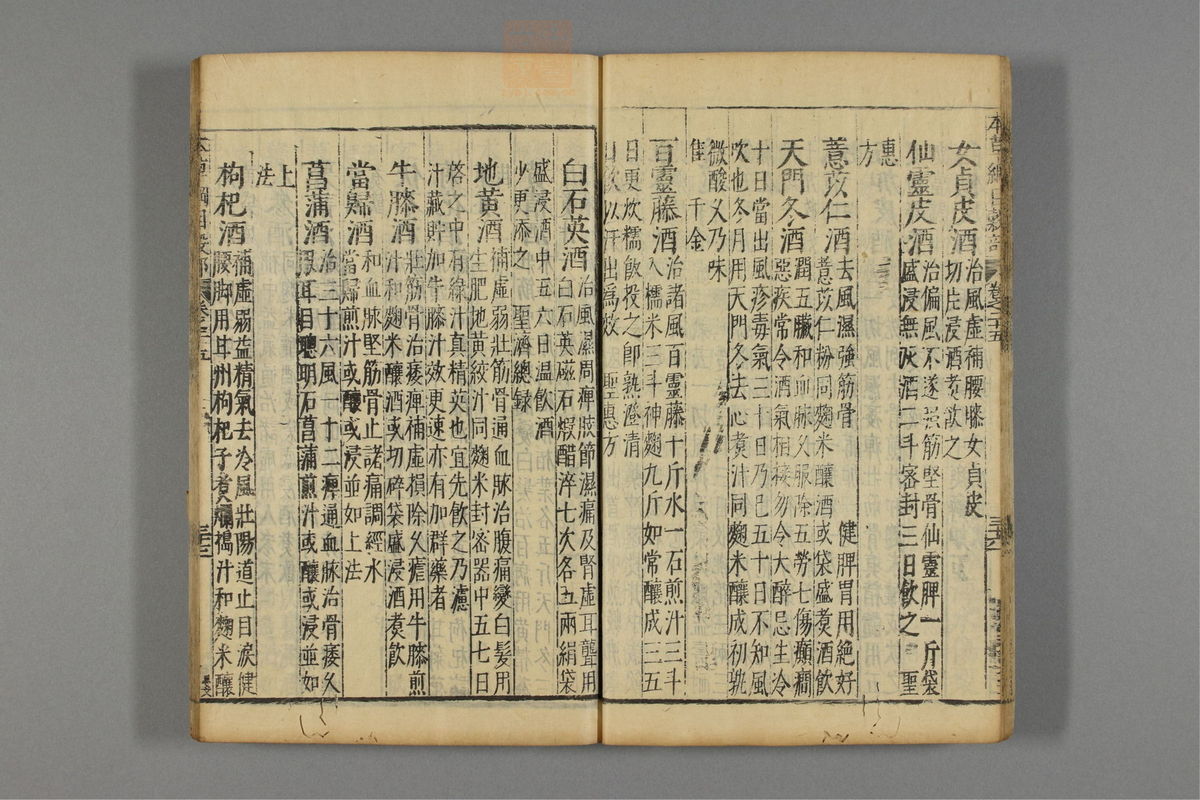 女貞皮酒
治風虛補腰膝女貞皮
切片浸酒煮飲之
仙靈皮酒
治偏風不遂強筋堅骨仙靈脾一斤袋
盛浸無灰酒二斗密封三日飲之 聖
惠
方
薏苡仁酒
去風濕強筋骨 健脾胃用絕好
薏苡仁粉同麴米釀酒或袋盛煮酒飲
天門冬酒
潤五臟和血脉久服除五勞七傷癲癇
惡疾常令酒氣相接勿令大醉忌生冷
十日當出風疹毒氣三十日乃已五十日不知風
吹也冬月用天門冬去心煮汁同麴米釀成初
微酸久乃味
佳 千金
百靈藤酒
治諸風百靈藤十斤水一石煎汁三斗
入糯米三斗神麴九斤如常釀成三五
日更炊糯飯投之即熟澄清
飲以汗出爲效 聖惠方
白石英酒
治風濕周痺肢節濕痛及腎虛耳聾用
白石英磁石煆醋淬七次各五兩絹袋
盛浸酒中五六日温飲酒
少更添之 聖濟總録
地黄酒
補虛弱壯筋骨通血脉治腹痛變白髮用
生肥地黄絞汁同麴米封密器中五七日
啓之中有綠汁真精英也宜先飲之乃濾
汁藏貯加牛膝汁效更速亦有加群藥者
牛膝酒
壯筋骨治痿痺補虛損除久瘧用牛膝煎
汁和麴米釀酒或切碎袋盛浸酒煮飲
當歸酒
和血脉堅筋骨止諸痛調經水
當歸煎汁或釀或浸並如上法
菖蒲酒
治三十六風一十二痺通血脉治骨痿久
服耳目聰明石菖蒲煎汁或釀或浸並如
上
法
枸杞酒
補虛弱益精氣去冷風壯陽道止目淚健
腰脚用甘州枸杞子煮爛搗汁和麴米釀